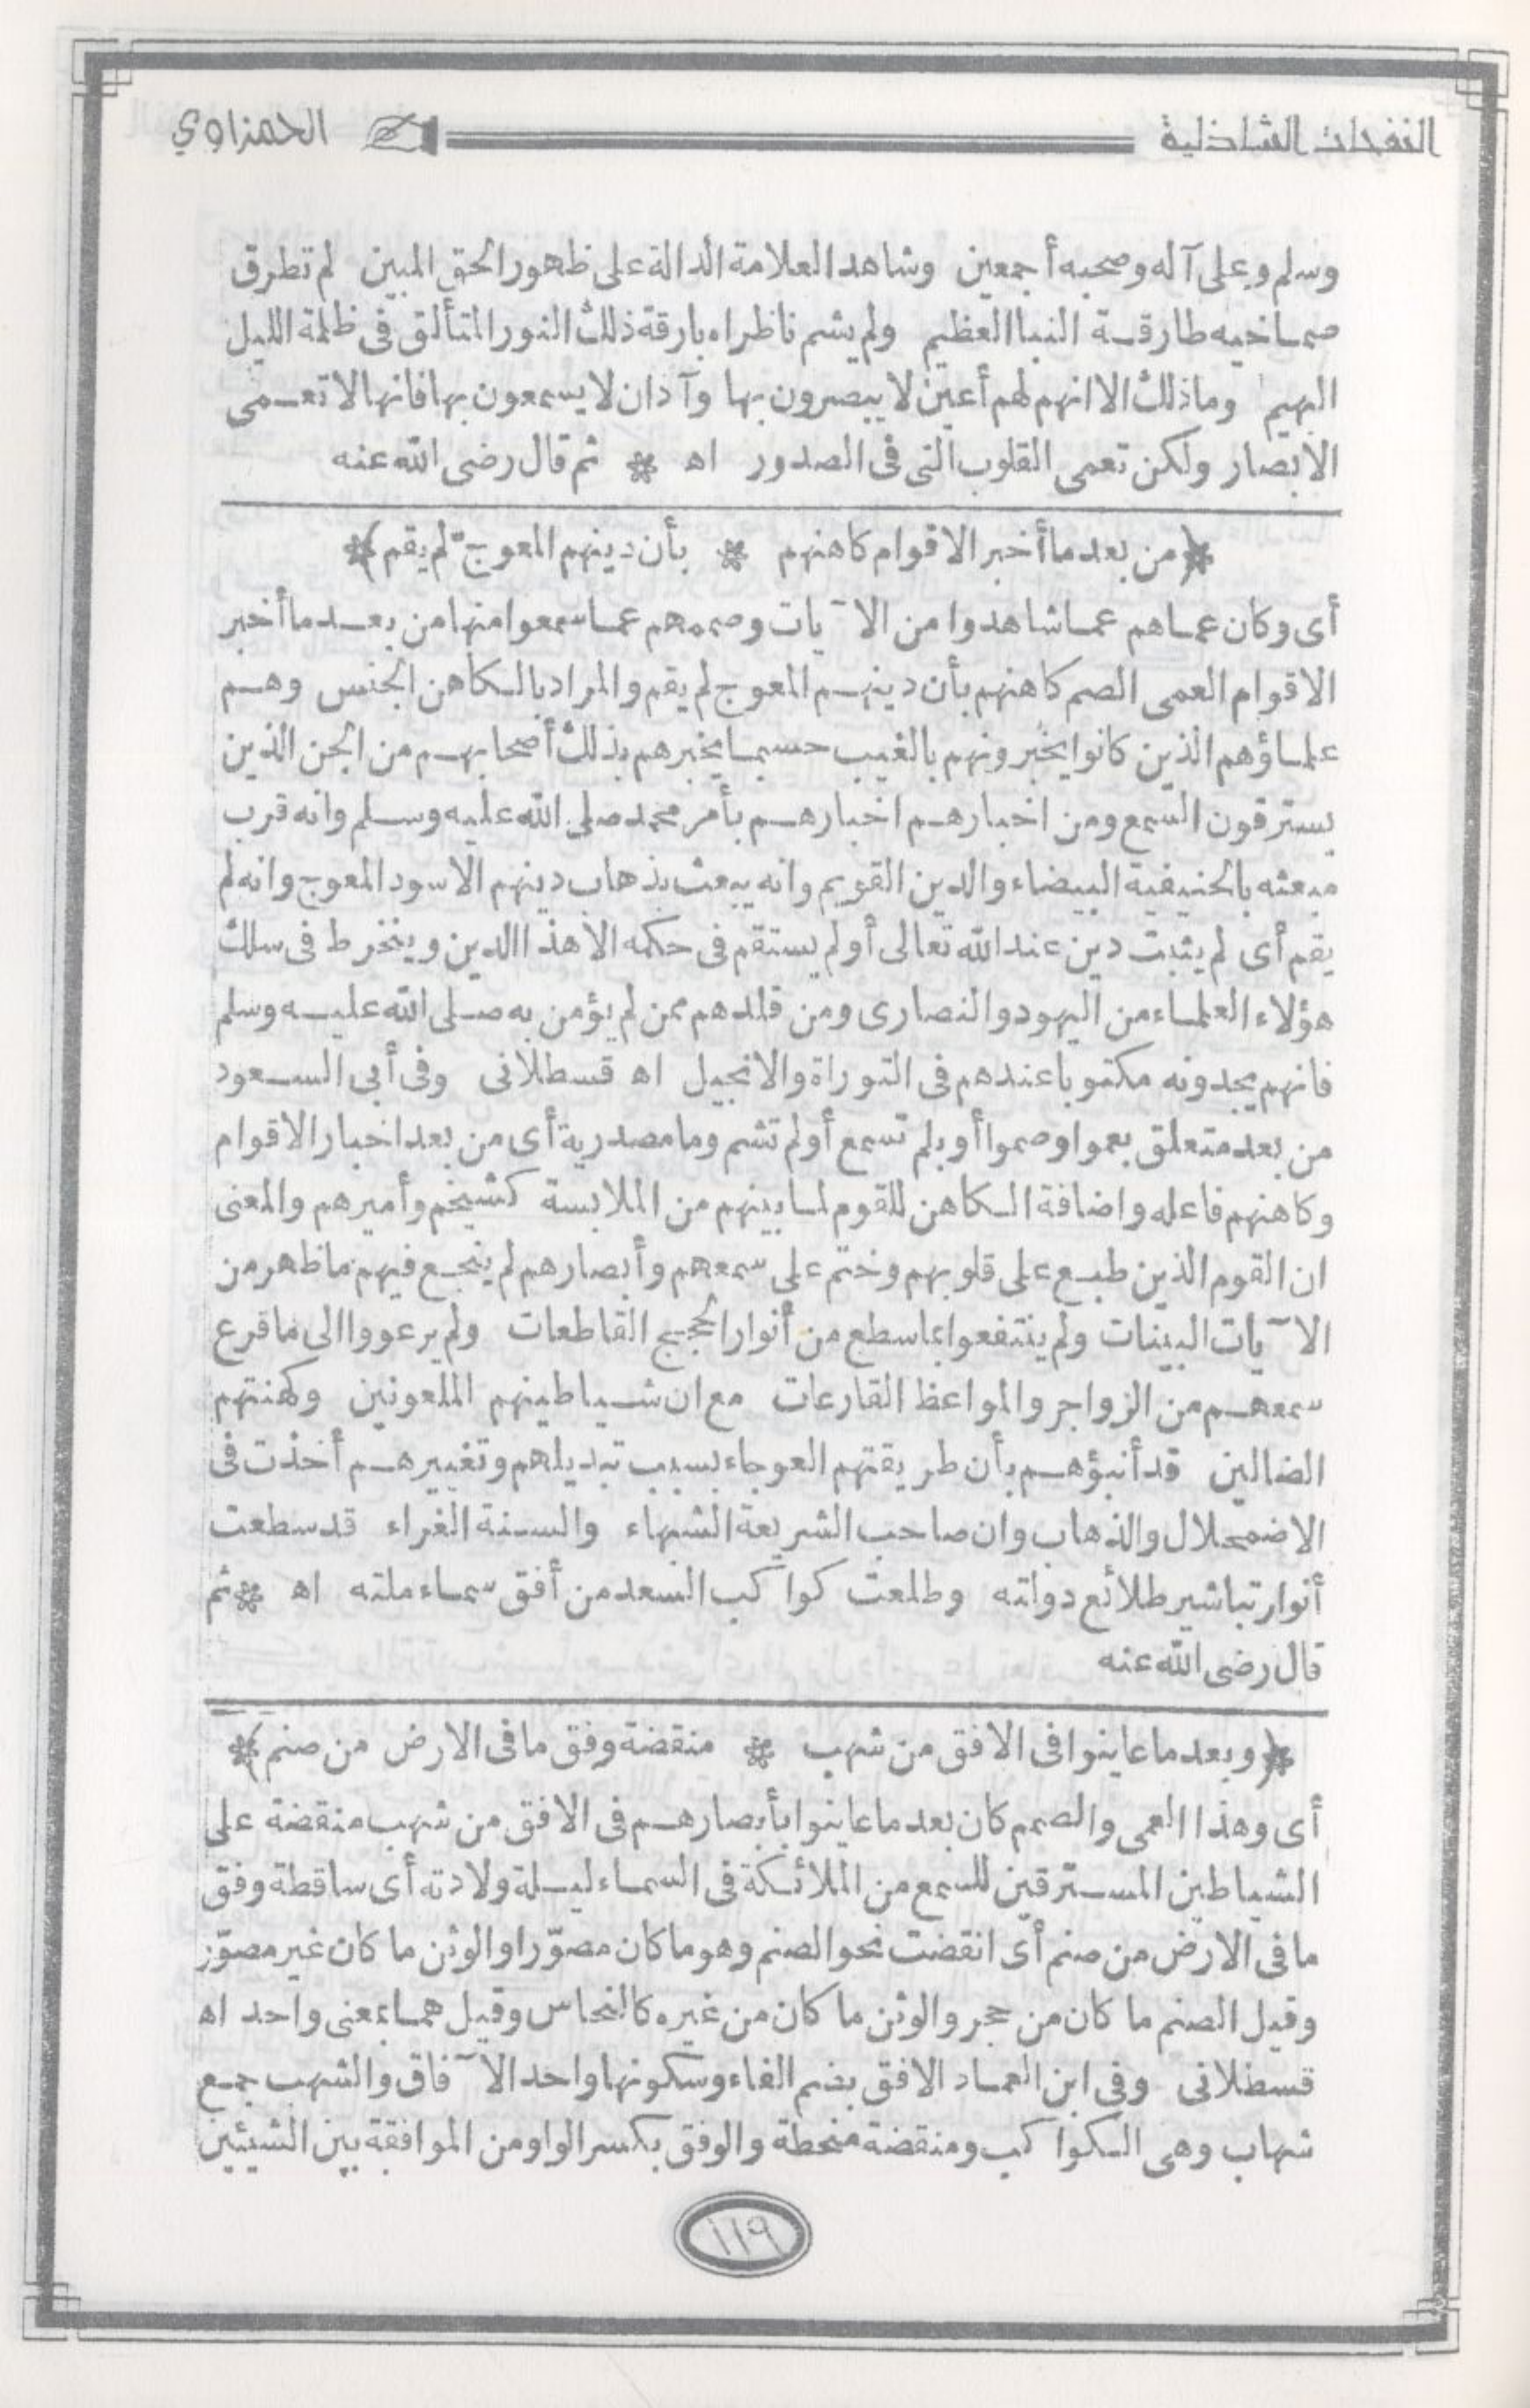 النفحات الشاذلية
الحمزاوي
وسلم وعلى آله وصحبه أجمعين وشاهد العلامة الدالة على ظهور الحق المبين لم تطرق
صماخيه طارقة النبا العظيم ولم يشم ناظراه بارقة ذلك النور المتألق فى ظلمة الليل
البهيم وما ذلك الا انهم لهم أعين لا يبصرون بها وآذان لا يسمعون بها فانها لا تعمى
الابصار ولكن تعمى القلوب التى فى الصدور اه * ثم قال رضى الله عنه
﴿من بعد ما أخبر الاقوام كاهنهم * بأن دينهم المعوج لم يقم﴾
أى وكان عماهم عما شاهدوا من الآيات وصممهم عما سمعوا منها من بعد ما أخبر
الاقوام العمى الصم كاهنهم بأن دينهم المعوج لم يقم والمراد بالكاهن الجنس وهم
علماؤهم الذين كانوا يخبرونهم بالغيب حسبما يخبرهم بذلك أصحابهم من الجن الذين
يسترقون السمع ومن اخبارهم اخبارهم بأمر محمد صلى الله عليه وسلم وانه قرب
مبعثه بالحنيفية البيضاء والدين القويم وانه يبعث بذهاب دينهم الاسود المعوج وانه لم
يقم أى لم يثبت دين عند الله تعالى أو لم يستقم فى حكمه الا هذا الدين وينخرط فى سلك
هؤلاء العلماء من اليهود والنصارى ومن قلدهم ممن لم يؤمن به صلى الله عليه وسلم
فانهم يجدونه مكتوبا عندهم فى التوراة والانجيل اه قسطلانى وفى أبى السعود
من بعد متعلق بعموا وصموا أو بلم تسمع أو لم تشم وما مصدرية أى من بعد اخبار الاقوام
وكاهنهم فاعله واضافة الكاهن للقوم لما بينهم من الملابسة كشيخهم وأميرهم والمعنى
ان القوم الذين طبع على قلوبهم وختم على سمعهم وأبصارهم لم ينجع فيهم ما ظهر من
الآيات البينات ولم ينتفعوا بما سطع من أنوار الحجج القاطعات ولم يرعووا الى ما قرع
سمعهم من الزواجر والمواعظ القارعات مع ان شياطينهم الملعونين وكهنتهم
الضالين قد أنبؤهم بأن طريقتهم العوجاء بسبب تبديلهم وتغييرهم أخذت فى
الاضمحلال والذهاب وان صاحب الشريعة الشهباء والسنة الغراء قد سطعت
أنوار تباشير طلائع دولته وطلعت كواكب السعد من أفق سماء ملته اه * ثم
قال رضى الله عنه
﴿وبعد ما عاينوا فى الافق من شهب * منقضة وفق ما فى الارض من صنم﴾
أى وهذا العمى والصمم كان بعد ما عاينوا بأبصارهم فى الافق من شهب منقضة على
الشياطين المسترقين للسمع من الملائكة فى السماء ليلة ولادته أى ساقطة وفق
ما فى الارض من صنم أى انقضت نحو الصنم وهو ما كان مصوّرا والوثن ما كان غير مصوّر
وقيل الصنم ما كان من حجر والوثن ما كان من غيره كالنحاس وقيل هما بمعنى واحد اه
قسطلانى وفى ابن العماد الافق بضم الفاء وسكونها واحد الآفاق والشهب جمع
شهاب وهى الكواكب ومنقضة منحطة والوفق بكسر الواو من الموافقة بين الشيئين
١١٩